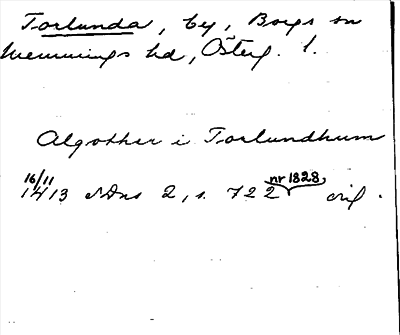 Torlunda, by, Borgs sn
Memmings hd, Österg. l.
Algother i Torlundhum
16/11 nr 1828
1413 SDns 2, s. 722 orig.